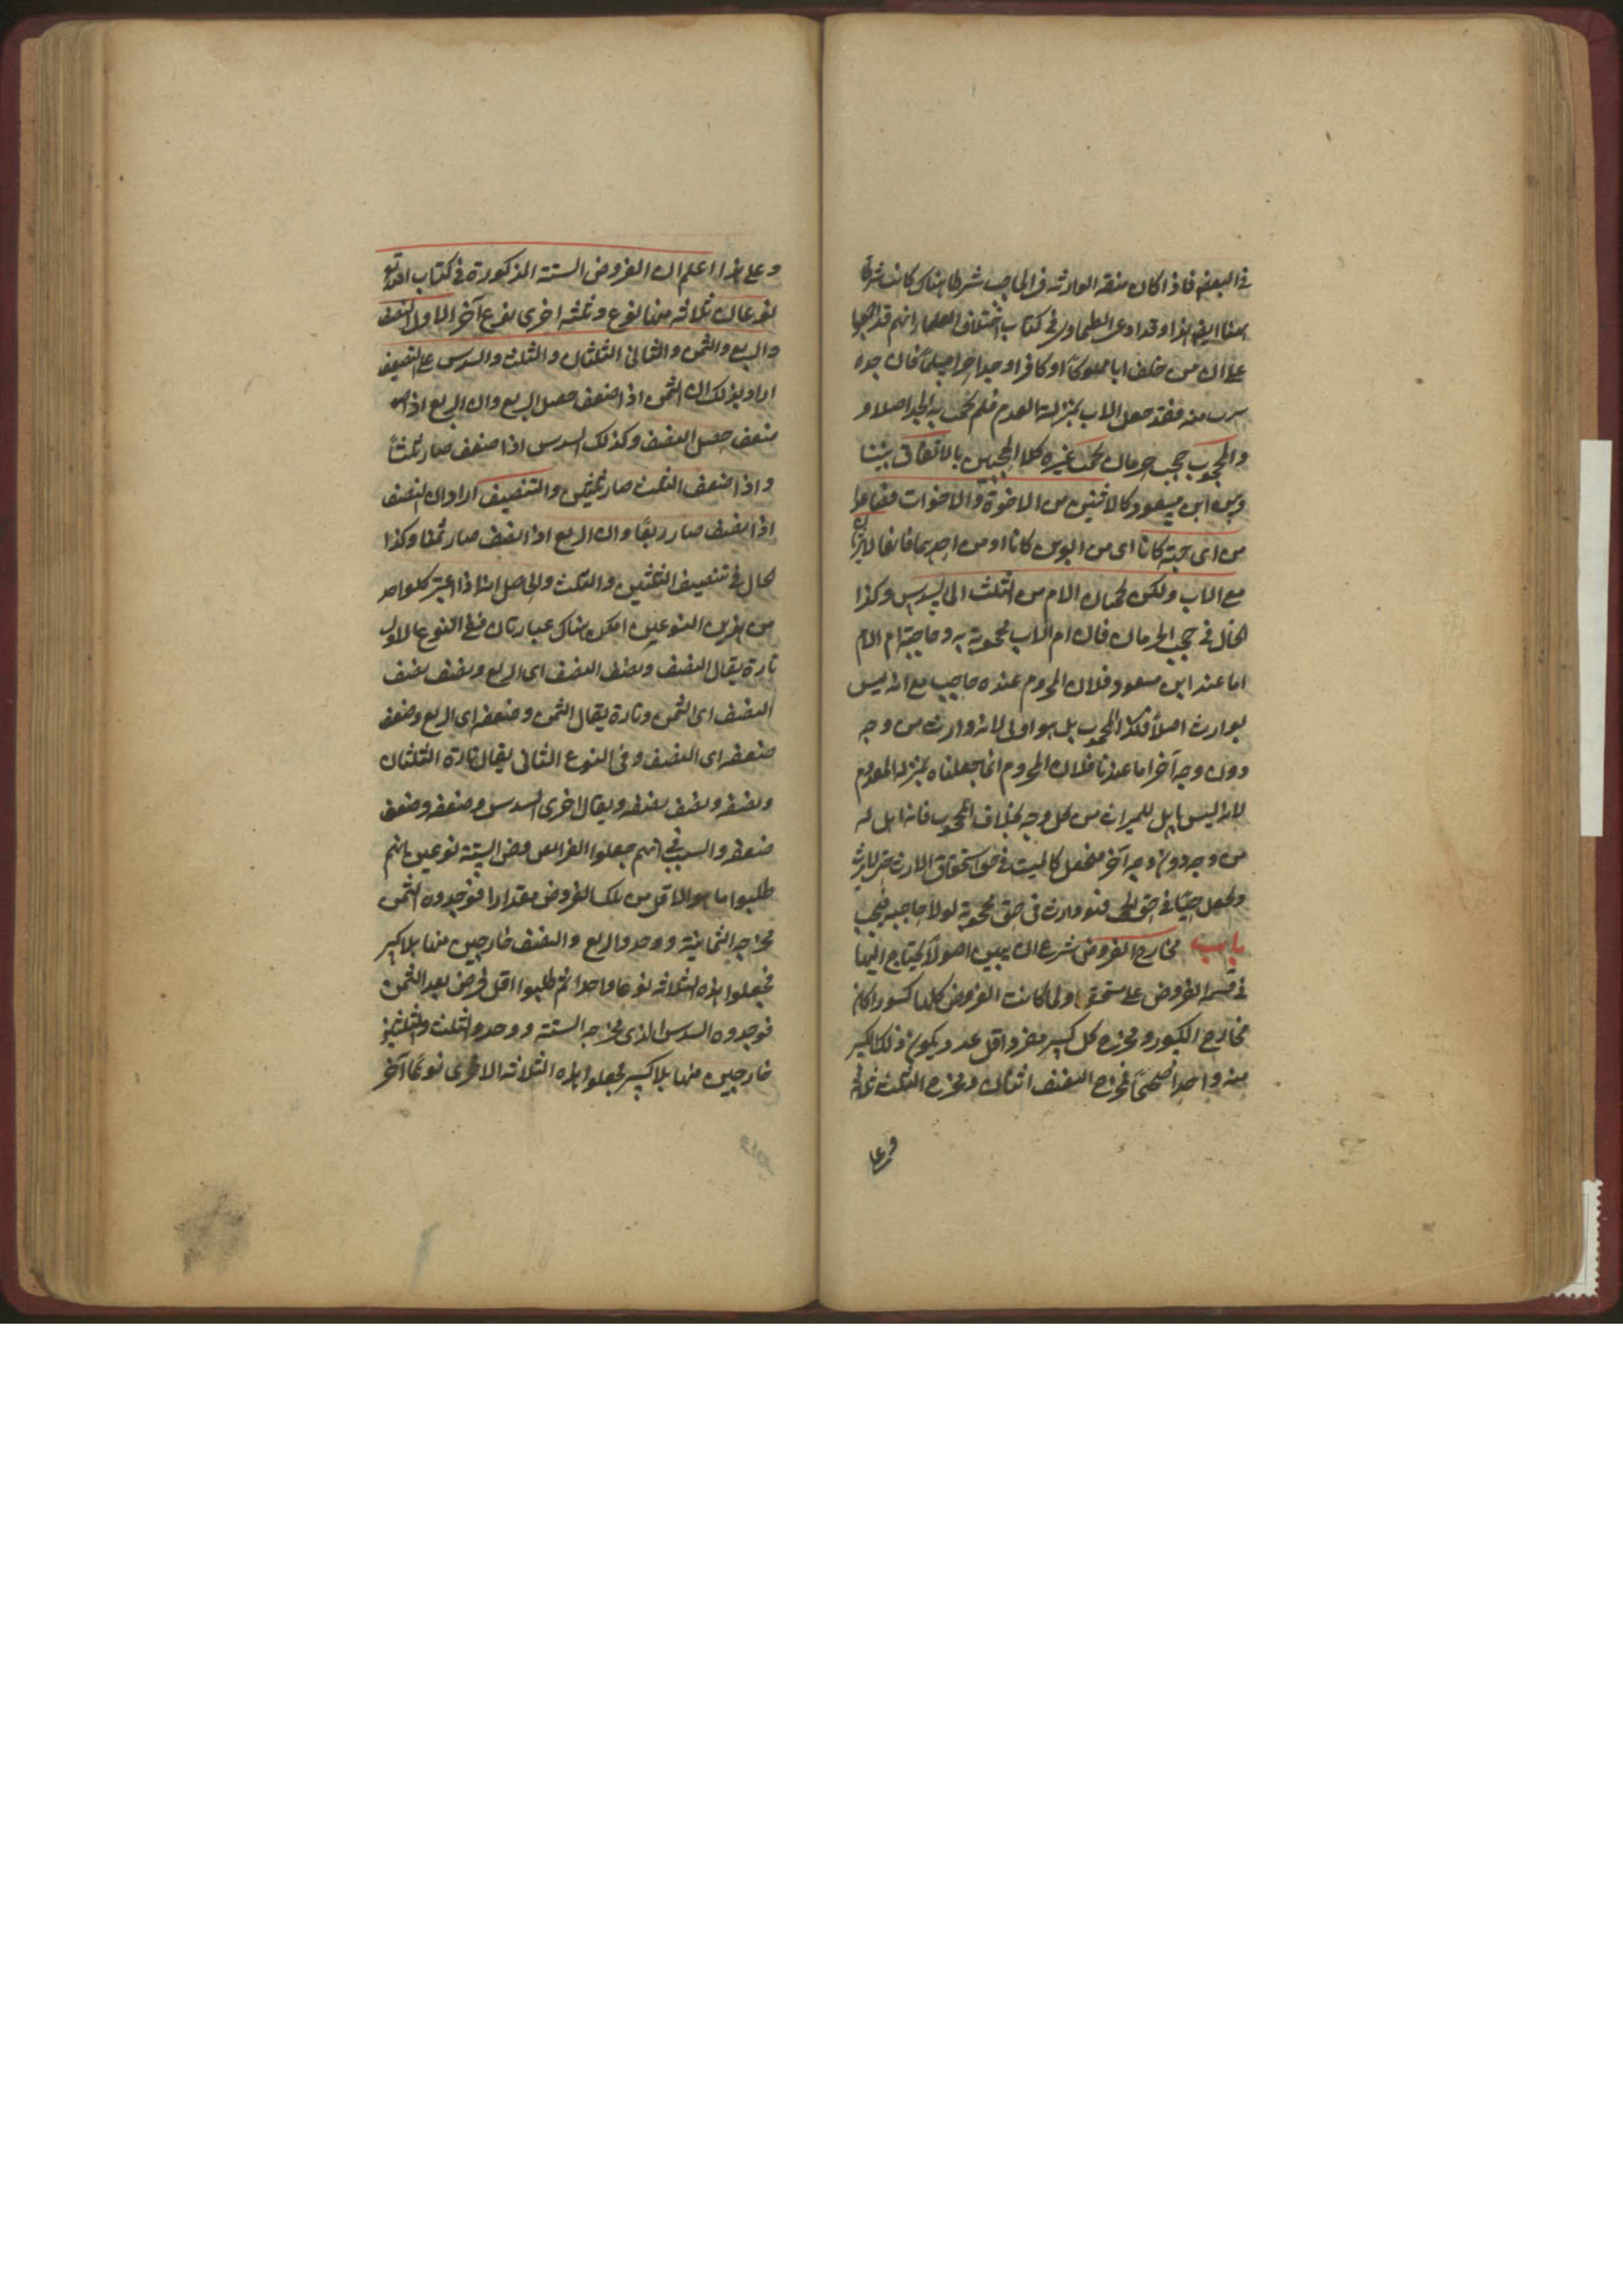 في البعض فاذا كان صفة الوارثية في الحاجب شرطا هناك كانت شرطا
ههنا ايضا هذا وقد ادعى الطحاوي في كتاب اختلاف العلماء انهم قد اجمعوا
على ان من خلف ابا مملوكا او كافرا وجدا حرا مسلما فان جده
يرث منه فقد جعل الاب بمنزلة العدم فلم يحجب به الجد اصلا و
والمحجوب حجب حرمان يحجب غيره كلا الحجبين بالاتفاق بيننا
وبين ابن مسعود كالاثنين من الاخوة والاخوات فصاعدا
من اي جهة كانا اي من ابوين كانا او من احدهما فانهما لا يرثان
مع الاب ولكن يحجبان الام من الثلث الى السدس وكذا
الحال في حجب الحرمان فان ام الاب محجوبة به وحاجبة ام الام
اما عند ابن مسعود فلان المحروم عنده حاجب مع انه ليس
بوارث اصلا فكذا المحجوب بل هو اولى لانه وارث من وجه
دون وجه آخر اما عندنا فلان المحروم انما جعلناه بمنزلة المعدوم
لانه ليس باهل للميراث من كل وجه بخلاف المحجوب فانه اهل له
من وجه دون وجه آخر فيجعل كالميت في حق استحقاق الارث حتى لا يرث
ويجعل حيا في حق الحجب فهو وارث في حق محجوبه لولا حاجبه فيحجب
باب مخارج الفروض شرع ان يبين اصولا يحتاج اليها
في قسمة الفروض على مستحقيها ولما كانت الفروض كلها كسورا كان
مخارج الكسور ومخرج كل كسر مفرد اقل عدد يكون ذلك الكسر
منه واحدا صحيحا فمخرج النصف اثنان ومخرج الثلث ثلاثة
وعلى
وعلى هذا اعلم ان الفروض الستة المذكورة في كتاب الله تع
نوعان ثلاثة منها نوع وثلثة اخرى نوع آخر الاول النصف
والربع والثمن والثاني الثلثان والثلث والسدس على التضعيف
اراد بذلك ان الثمن اذا ضعف حصل الربع وان الربع اذا
ضعف حصل النصف وكذلك السدس اذا ضعف صار ثلثا
واذا ضعف الثلث صار ثلثين والتنصيف اراد ان النصف
اذا نصف صار ربعا وان الربع اذا نصف صار ثمنا وكذا
الحال في تنصيف الثلثين والثلث والحاصل انا اذا اعتبر كلواحد
من هذين النوعين امكن هناك عبارتان ففي النوع الاول
تارة يقال النصف ونصف النصف اي الربع ونصف نصف
النصف اي الثمن وتارة يقال الثمن وضعفه اي الربع وضعف
ضعفه اي النصف وفي النوع الثاني يقال تارة الثلثان
ونصفه ونصف نصفه ويقال اخرى السدس وضعفه وضعف
ضعفه والسبب في انهم جعلوا الفرائض الستة نوعين انهم
طلبوا ما هو الاقل من تلك الفروض مقدارا فوجدوه الثمن
مخرجه الثمانية ووجدوا الربع والنصف خارجين منها بلا كسر
فجعلوا هذه الثلاثة نوعا واحدا ثم طلبوا اقل فرض بعد الثمن
فوجدوه السدس الذي مخرجه الستة ووجدوا الثلث والثلثين
خارجين منها بلا كسر فجعلوا هذه الثلاثة الاخرى نوعا آخر